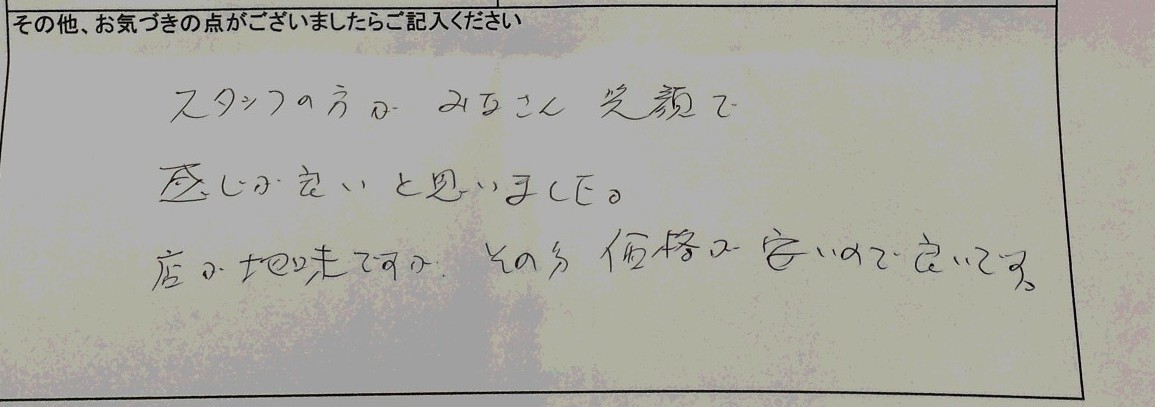 その他、お気づきの点がございましたらご記入ください
スタッフの方が みなさん 笑顔で
感じが良いと思いました。
店が地味ですが、その分 価格が安いので良いです。